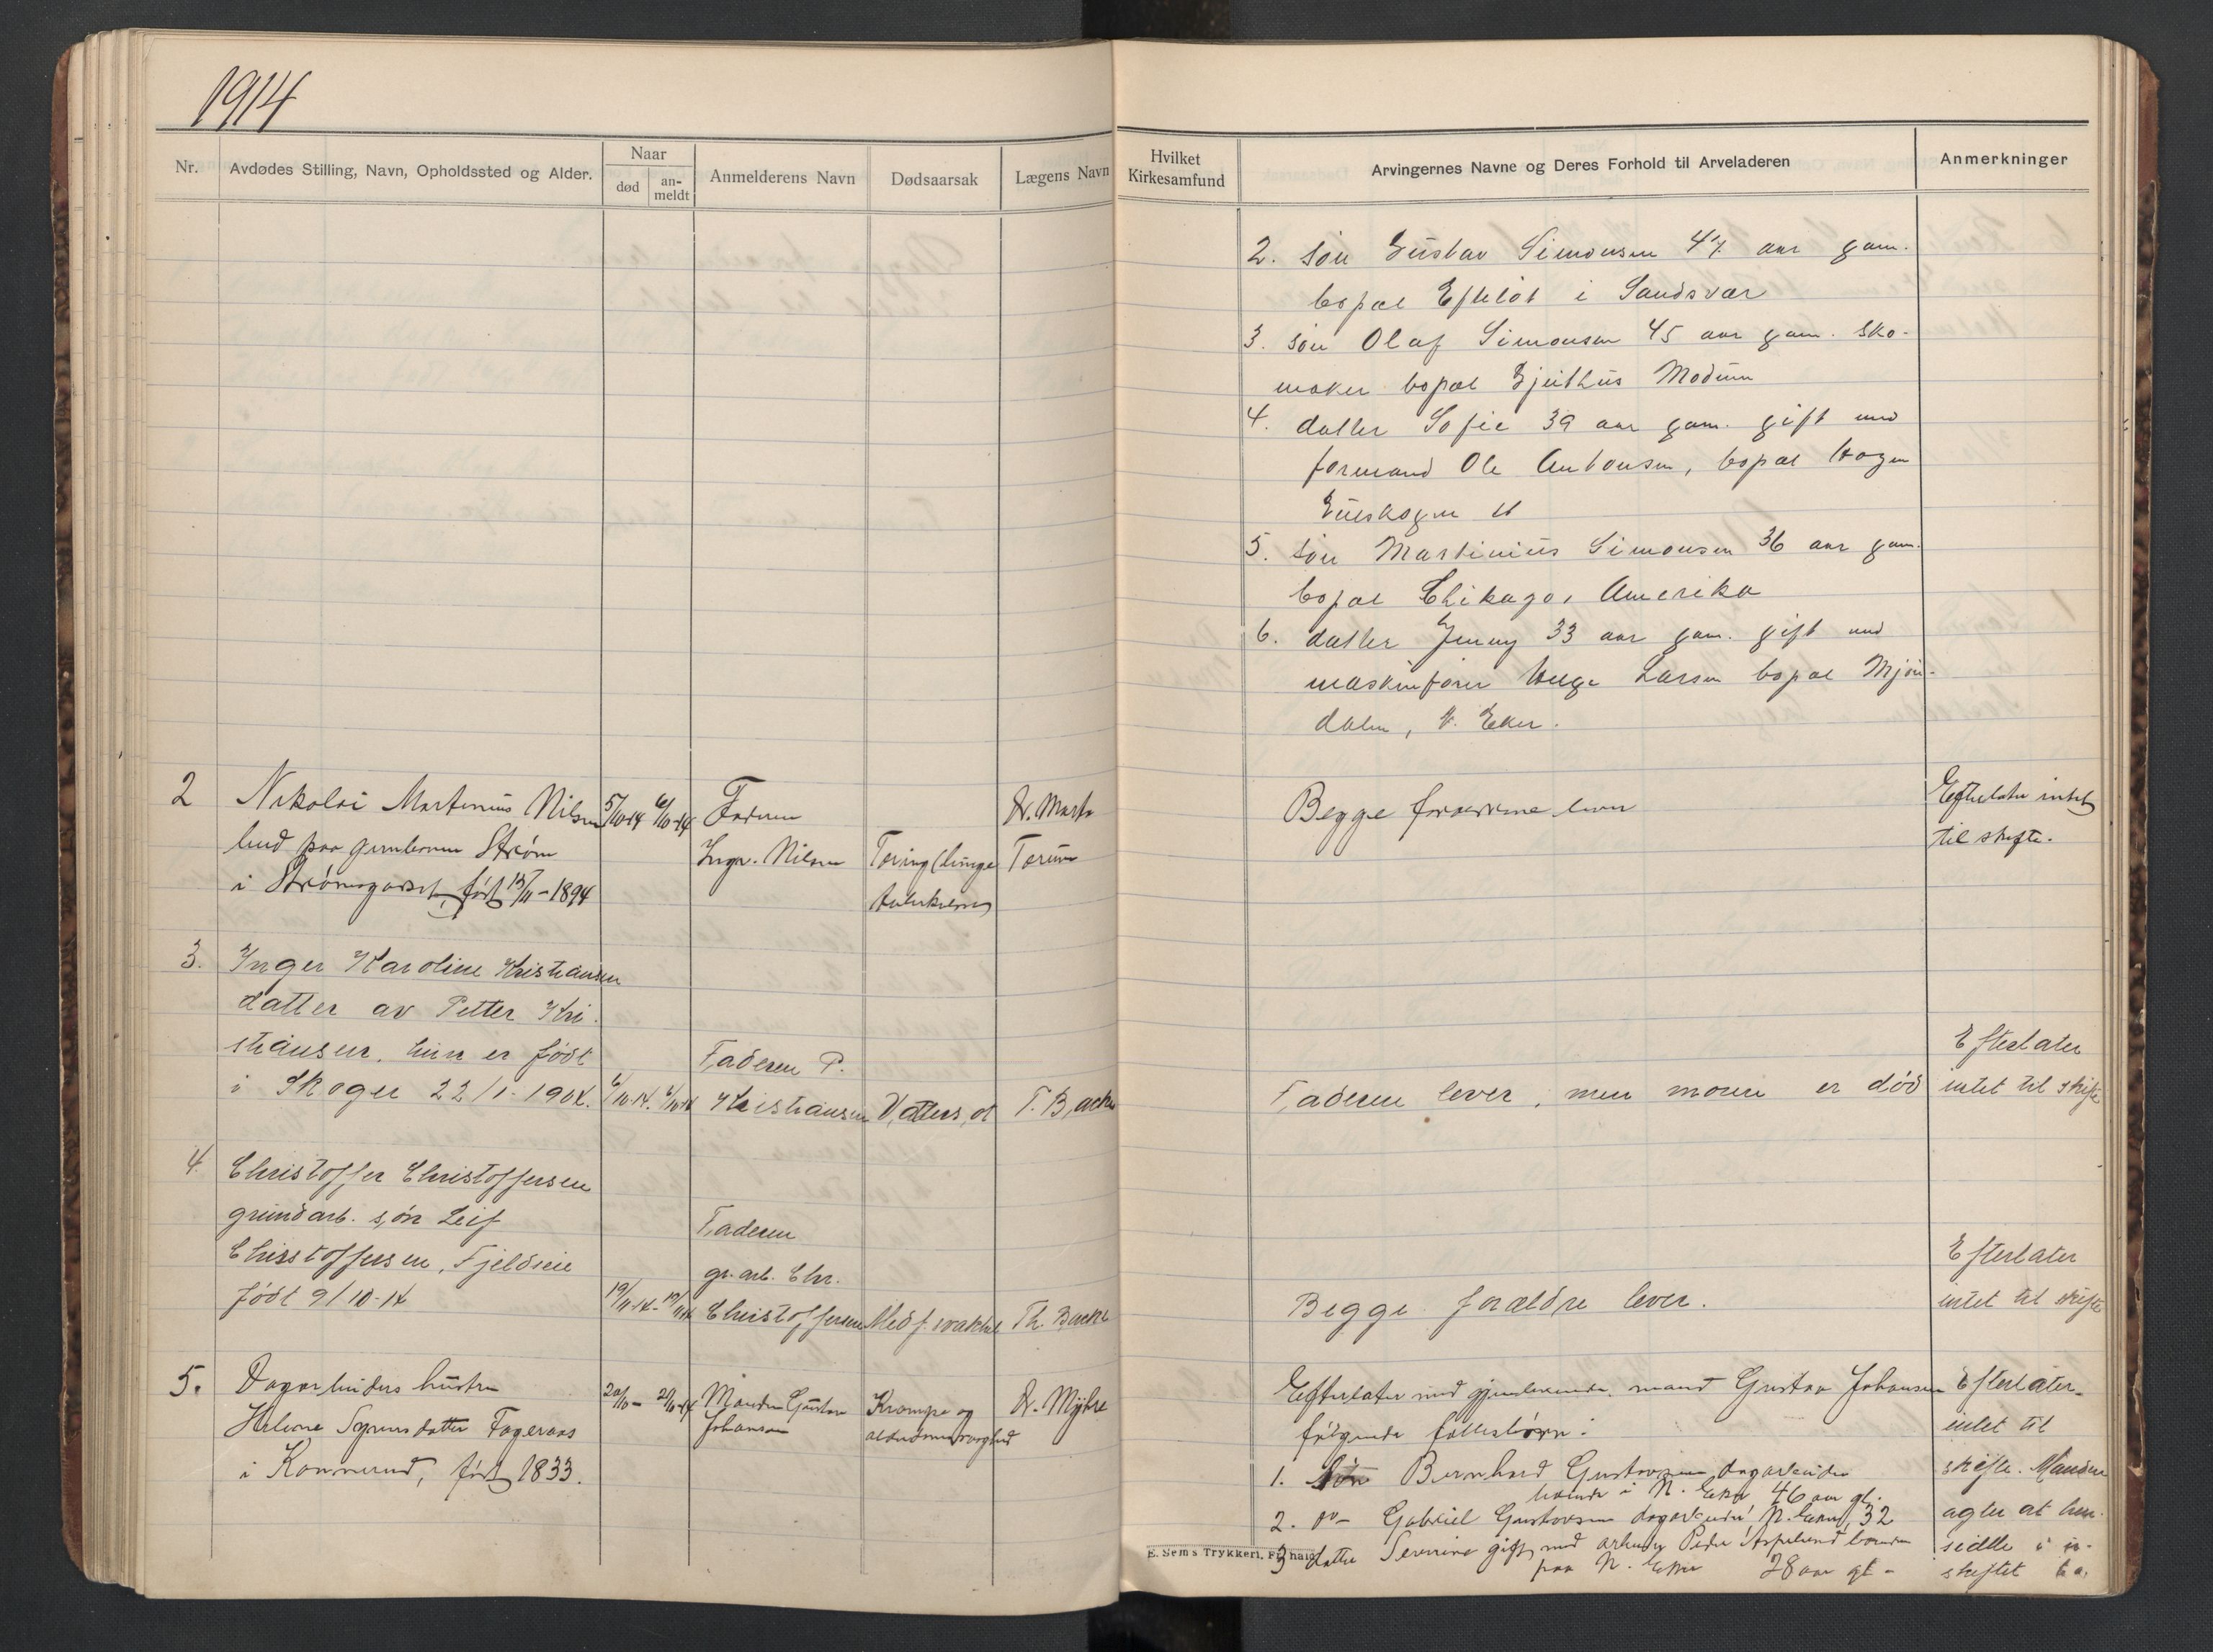 1914
Nr.
Avdødes Stilling, Navn, Opholdssted og Alder.
Naar
død
an-
meldt
Anmelderens Navn
Dødsaarsak
Lægens Navn
Hvilket
Kirkesamfund
Arvingernes Navne og Deres Forhold til Arveladeren
Anmerkninger
2. søn Gustav Simonsen 47 aar gam.
bopæl Efteløt i Sandsvær
3. søn Olaf Simonsen 45 aar gam. sko-
maker bopæl Gjeithus Modum
4. datter Sofie 39 aar gam. gift med
formand Ole Antonsen, bopæl Hagen
Gulskogen st
5. søn Martinius Simonsen 36 aar gam.
bopæl Chikago, Amerika
6. datter Jenny 33 aar gam. gift med
maskinfører Helge Larsen bopæl Mjøn-
dalen, N. Eker.
2
Nikolai Martinius Nilsen
5/10-14
6/10-14
Faderen
Dr. Marta
Begge forældrene lever
Efterlater intet
til skifte.
i Strømsgodset, født 15/11-1894
Ingv. Nilsen
Tæring (lunge
tuberkulose)
3. Inger Karoline Kristiansen
datter av Petter Kri-
stiansen. hun er født
i Skoger 22/1-1904.
6/10-14. 6/10-14
Faderen P.
Kristiansen
T. Backe
Faderen lever, men moren er død
Efterlater
intet til skifte
4. Christoffer Christoffersen
grundarb. søn Leif
Christoffersen, Fjeldseie
født 9/10-14
19/11-14-19/11-14
Faderen
gr. arb. Chr.
Christoffersen
Medf. svakhet
Th. Backe
Begge forældre lever.
Efterlater
intet til skifte
5. Dagarbeiders hustru
Helene Syversdatter Fageraas
i Konnerud, født 1833.
20/10- 21/10-14
Manden Gustav
Johansen
Krampe og
alderdomssvaghed
Dr. Myhre
Efterlater med gjenlevende mand Gustav Johansen
følgende fællesbørn:
1. Søn Bernhard Gustavsen dagarbeider
boende i N. Eker 46 aar gl.
2. do- Gabriel Gustavsen dagarbeider N. Eker, 32
3 datter Severine gift med arbeider Peder Aspelund boende
paa N. Eker 28 aar gl-
Efterlater-
intet til
skifte. Manden
agter at hen-
sidde i u-
skiftet bo.
E. Sem's Trykkeri, Fr.hald